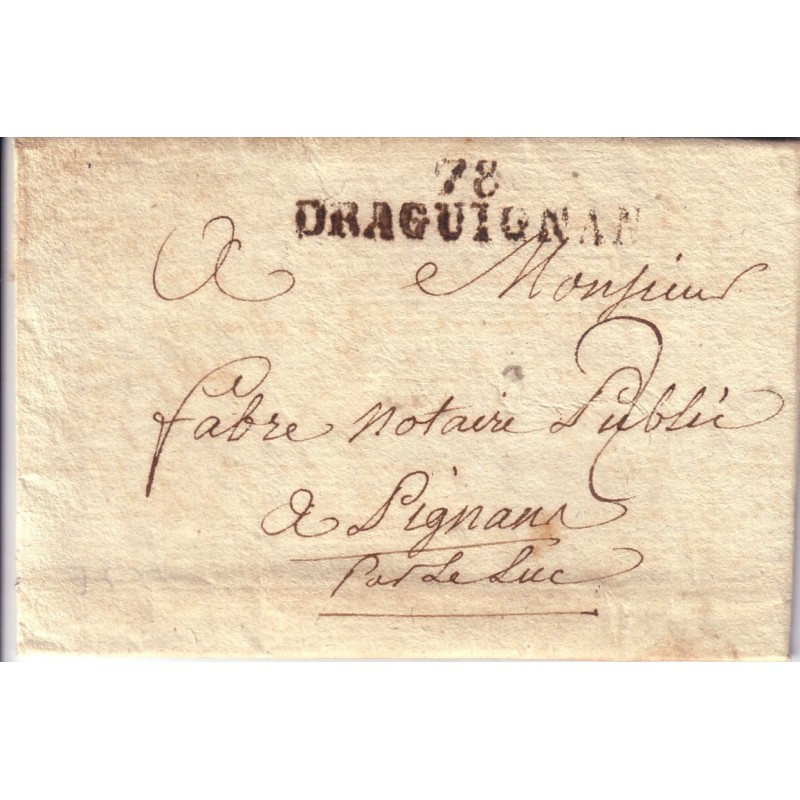 78
DRAGUIGNAN
A Monsieur
fabre notaire Public
2
a Pignans
Par Le Luc